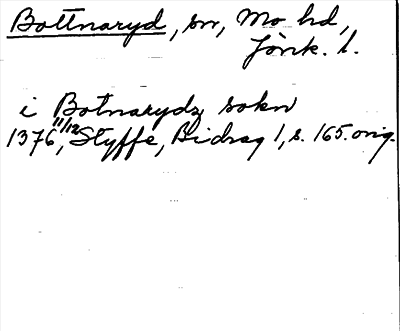 Bottnaryd, sn, Mo hd,
Jönk. l.
i Botnarydz sokn
1376 11/12, Styffe, Bidrag 1, s. 165. orig.